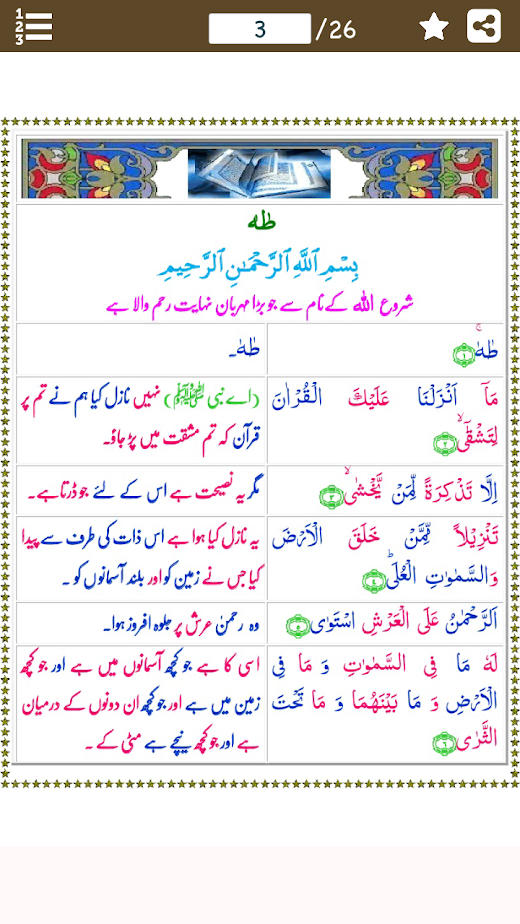 1
2
3
3 /26
طٰہٰ
بِسْمِ ٱللَّهِ ٱلرَّحْمَـٰنِ ٱلرَّحِيمِ
شروع اللہ کے نام سے جو بڑا مہربان نہایت رحم والا ہے
طٰهٰ ۚ ﴿١﴾
طٰہٰ۔
مَاۤ اَنْزَلْنَا عَلَيْكَ الْقُرْاٰنَ
لِتَشْقٰٓى ۙ ﴿٢﴾
(اے نبی ﷺ) نہیں نازل کیا ہم نے تم پر
قرآن کہ تم مشقت میں پڑ جاؤ۔
اِلَّا تَذْكِرَةً لِّمَنْ يَّخْشٰى ۙ ﴿٣﴾
مگر یہ نصیحت ہے اس کے لئے جو ڈرتا ہے۔
تَنْزِيْلًا مِّمَّنْ خَلَقَ الْاَرْضَ
وَالسَّمٰوٰتِ الْعُلٰى ؕ ﴿٤﴾
یہ نازل کیا ہوا ہے اس ذات کی طرف سے پیدا
کیا جس نے زمین کو اور بلند آسمانوں کو ۔
اَلرَّحْمٰنُ عَلَى الْعَرْشِ اسْتَوٰى ﴿٥﴾
وہ رحمٰن عرش پر جلوہ افروز ہوا۔
لَهٗ مَا فِى السَّمٰوٰتِ وَ مَا فِى
الْاَرْضِ وَ مَا بَيْنَهُمَا وَ مَا تَحْتَ
الثَّرٰى ﴿٦﴾
اسی کا ہے جو کچھ آسمانوں میں ہے اور جو کچھ
زمین میں ہے اور جو کچھ ان دونوں کے درمیان
ہے اور جو کچھ نیچے ہے مٹی کے ۔